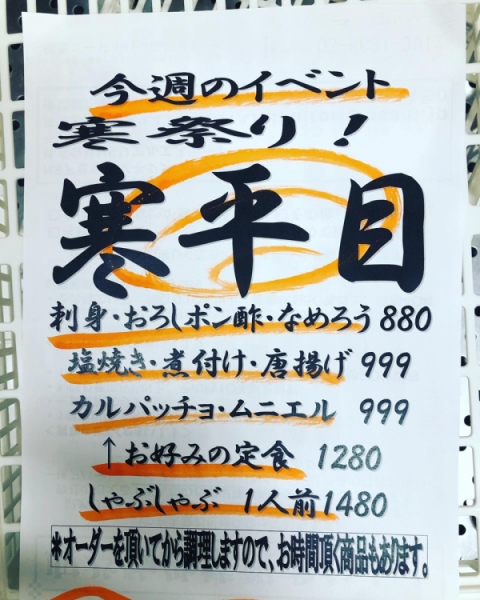 今週のイベント
寒祭り！
寒平目
刺身・おろしポン酢・なめろう 880
塩焼き・煮付け・唐揚げ 999
カルパッチョ・ムニエル 999
↑お好みの定食 1280
しゃぶしゃぶ 1人前1480
＊オーダーを頂いてから調理しますので、お時間頂く商品もあります。